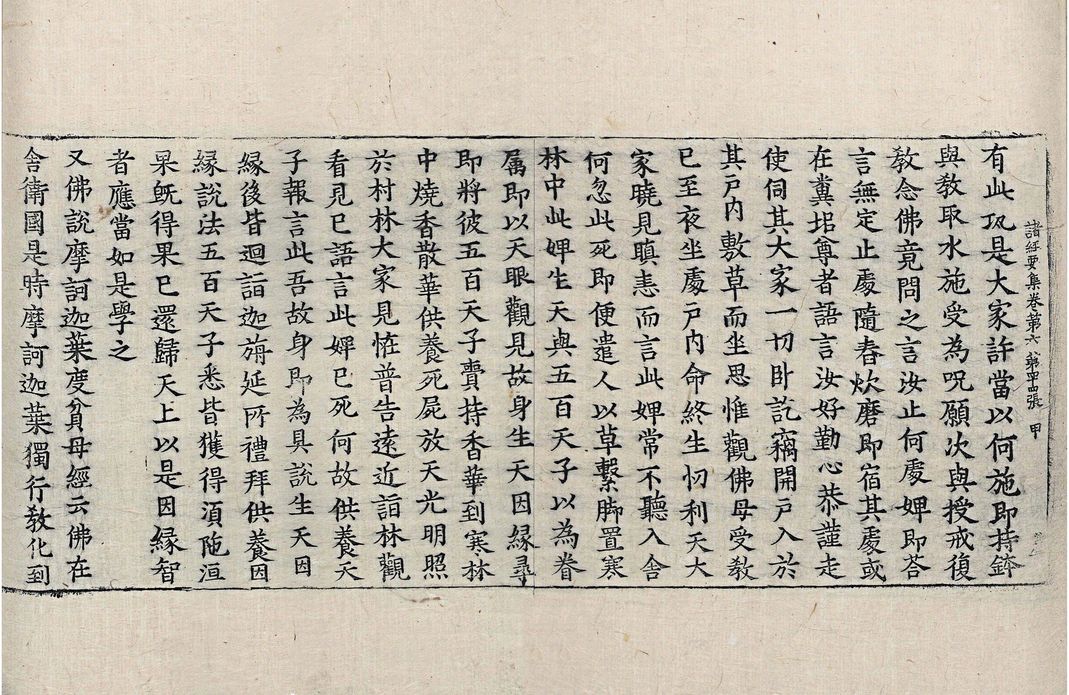 諸經要集卷第六 四張 甲
有此瓨是大家許當以何施即持鉢
與教取水施受為呪願次與授戒復
教念佛竟問之言汝止何處婢即荅
言無定止處隨舂炊磨即宿其處或
在糞垖尊者語言汝好勤心恭謹走
使伺其大家一切卧訖竊開戶入於
其戶內敷草而坐思惟觀佛母受教
已至夜坐處戶內命終生忉利天大
家曉見瞋恚而言此婢常不聽入舍
何忽此死即便遣人以草繫脚置寒
林中此婢生天與五百天子以為眷
属即以天眼觀見故身生天因緣尋
即將彼五百天子賫持香華到寒林
中燒香散華供養死屍放天光明照
於村林大家見恠普告遠近詣林觀
看見已語言此婢已死何故供養天
子報言此吾故身即為具說生天因
緣後皆迴詣迦旃延所禮拜供養因
緣說法五百天子悉皆獲得湏陁洹
果旣得果已還歸天上以是因緣智
者應當如是學之
又佛說摩訶迦葉度貧母經云佛在
舍衛國是時摩訶迦葉獨行教化到